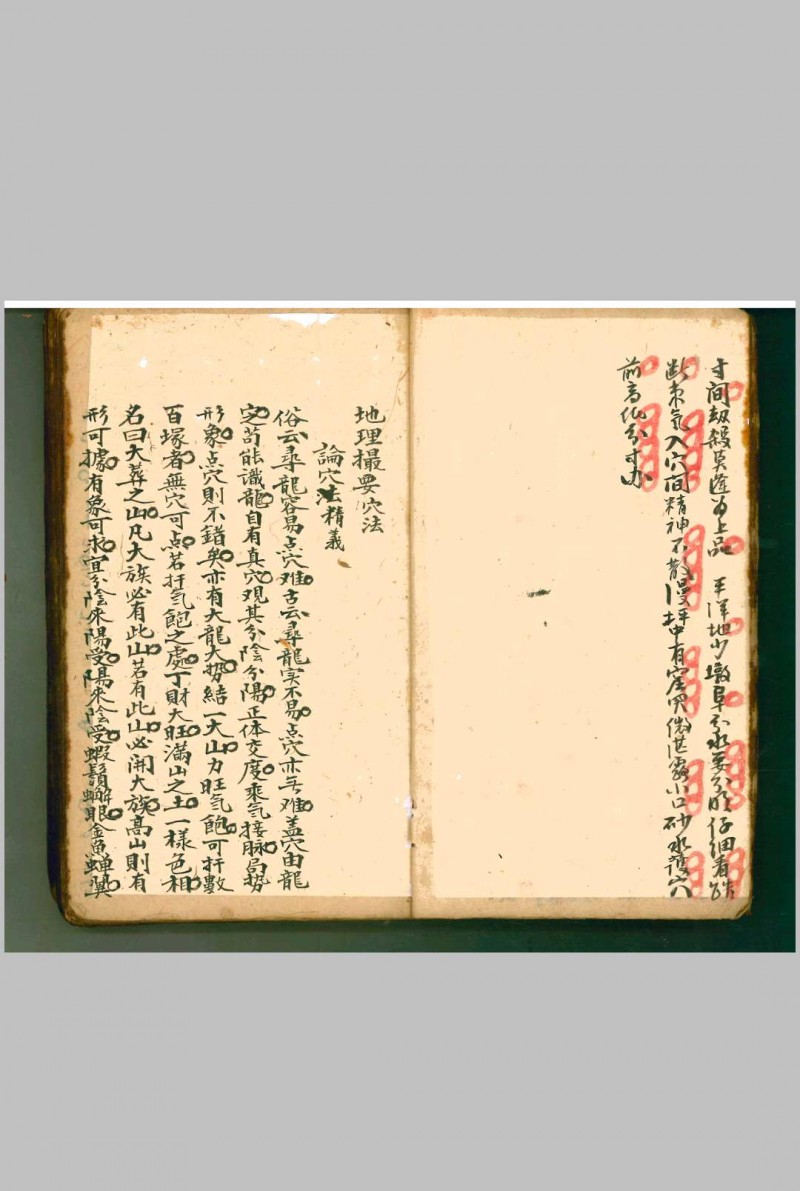 寸間劫殺莫逢為上品 平洋地少墩阜分水要分明仔細看
断來氣入穴間精神不散漫坪中有窩 微茫露小口砂水護
前高 分寸办
地理撮要穴法
論穴法精義
俗云尋龍容易点穴难古云尋龍实不易点穴亦无难盖穴由龍
定苟能識龍自有真穴观其分陰分陽正体交度乘气接脉局势
形象点穴則不錯矣亦有大龍大势結一大山力旺气飽可扦數
百塚者無穴可点若扦气飽之處丁財大旺滿山之土一樣色相
名曰大葬之山凡大族必有此山若有此山必開大族高山則有
形可據有象可求宜分陰來陽受陽來陰受蝦鬚蠏眼金魚蝉翼